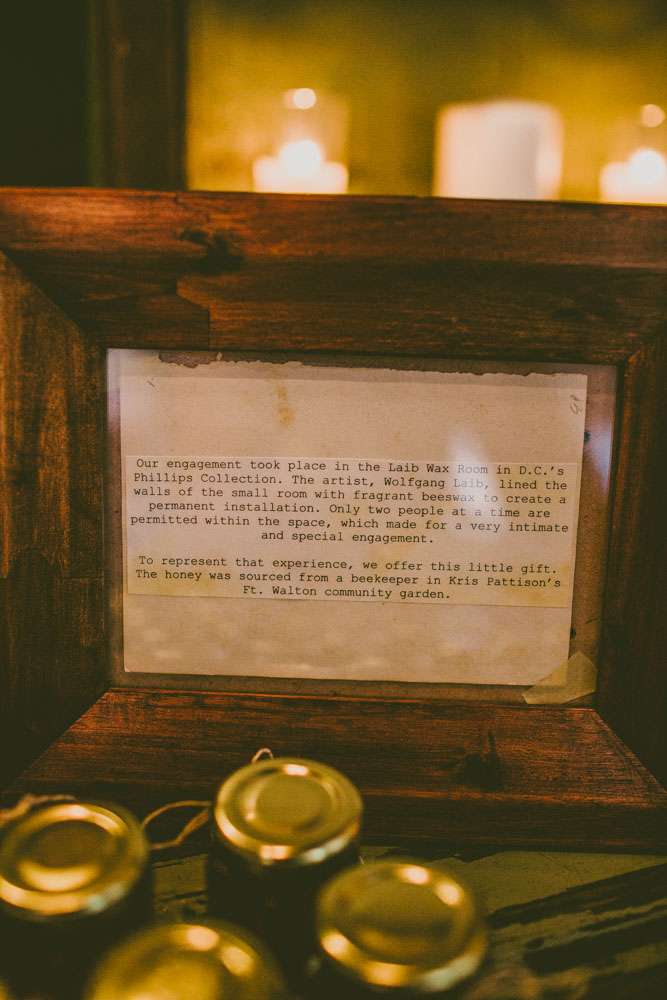 Our engagement took place in the Laib Wax Room in D.C.'s
Phillips Collection. The artist, Wolfgang Laib, lined the
walls of the small room with fragrant beeswax to create a
permanent installation. Only two people at a time are
permitted within the space, which made for a very intimate
and special engagement.
To represent that experience, we offer this little gift.
The honey was sourced from a beekeeper in Kris Pattison's
Ft. Walton community garden.